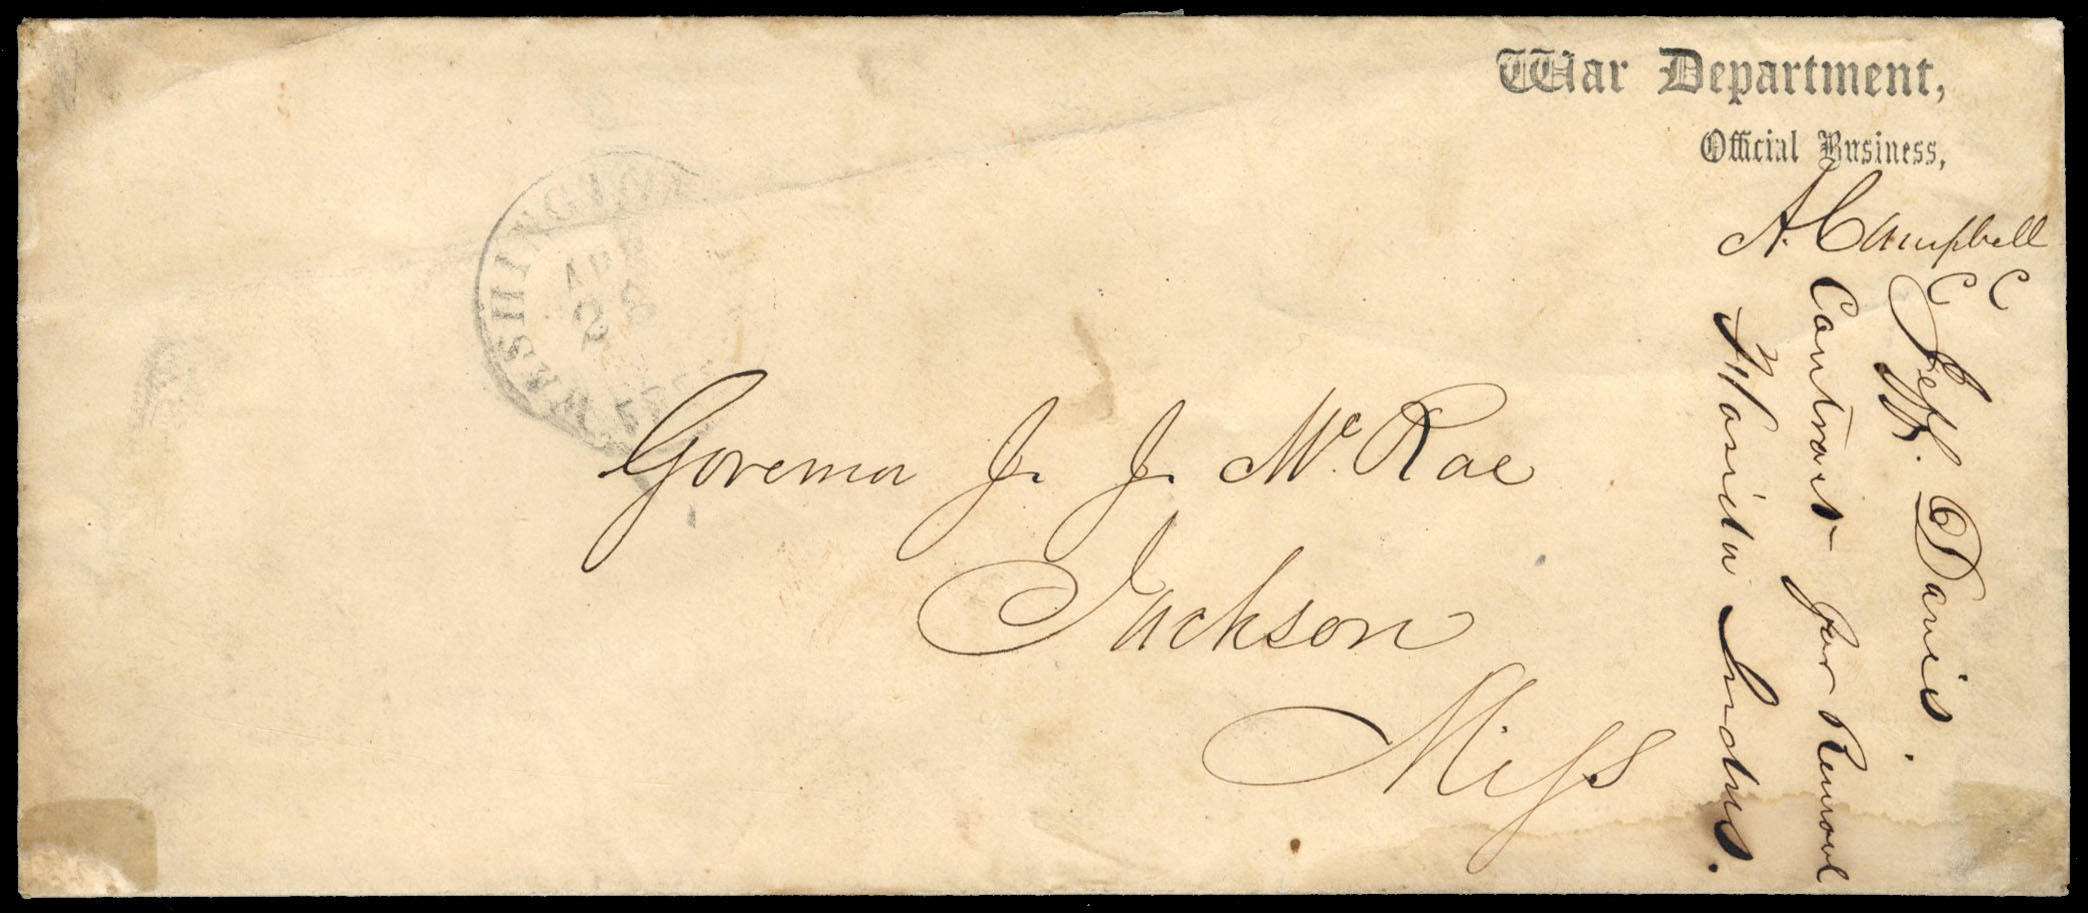 War Department,
Official Business,
A. Campbell
C C
Jeff. Davis.
Contract for Removal
Florida Indns.
WASHINGTON
APR
28
FREE
Governor J. J. McRae
Jackson
Miss